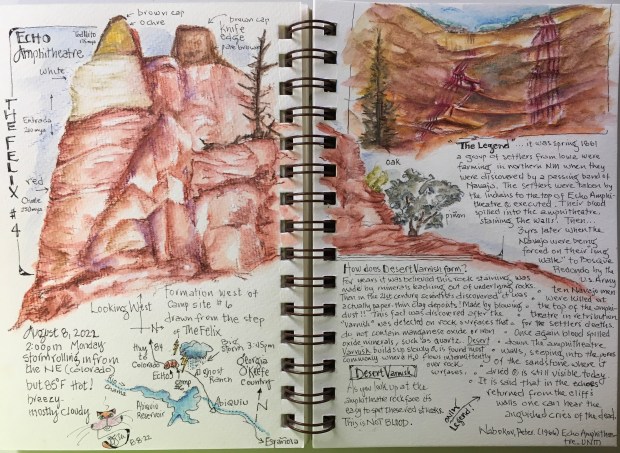 ECHO
Amphitheatre
brown cap
ochre
Todilto
brown cap
knife
edge
pure brown
white
Entrada
red
Chinle
THE FELIX
#4
Formation west of
Camp site #6
drawn from the step
of The Felix
Looking West
N
August 8, 2022
2:00pm Monday
storm rolling in from
the NE (Colorado)
but 85°F Hot!
breezy
mostly cloudy
8·8·22
hwy
84
to
Colorado
ECHO
camp
BIG
storm
3:45pm
Ghost
Ranch
Georgia
O'Keefe
Country
Rio
Chama
Abiquiu
Reservoir
Abiquiu
N
Española
oak
piñon
"The Legend"... it was spring 1861
a group of settlers from Iowa were
farming in northern NM when
they were discovered by a passing band of
Navajo. The settlers were taken by
the Indians to the top of Echo Amphi-
theatre & executed. Their blood
spilled into the amphitheatre,
staining the walls! Then...
3 yrs later when the
Navajo were being
forced on their "long
walk" to Bosque
Redondo by the
U.S. Army
ten Navajo men
were killed at
the top of the amphi-
theatre in retribution
for the settlers' deaths.
Once again blood spilled
down the amphitheatre
walls, seeping into the pores
of the sandstone where it
dried & is still visible today.
It is said that in the echoes
returned from the cliff
walls one can hear the
anguished cries of the dead.
Nabokov, Peter (1966) Echo Amphithea-
tre. UNM
only
Legend!
How does Desert Varnish form?
For years it was believed this rock staining was
made by minerals leaching out of underlying rocks.
Then in the 21st century scientists discovered it was
actually paper thin clay deposits! Made by blowing
dust!! This fact was discovered after the
"varnish" was detected on rock surfaces that
do not contain manganese oxide or iron
oxide minerals, such as quartz. Desert
Varnish builds up steadily & is found most
commonly where H₂O flows intermittently
over rock
surfaces.
Desert Varnish
As you look up at the
amphitheatre rock face it's
easy to spot these red streaks.
This is NOT BLOOD.